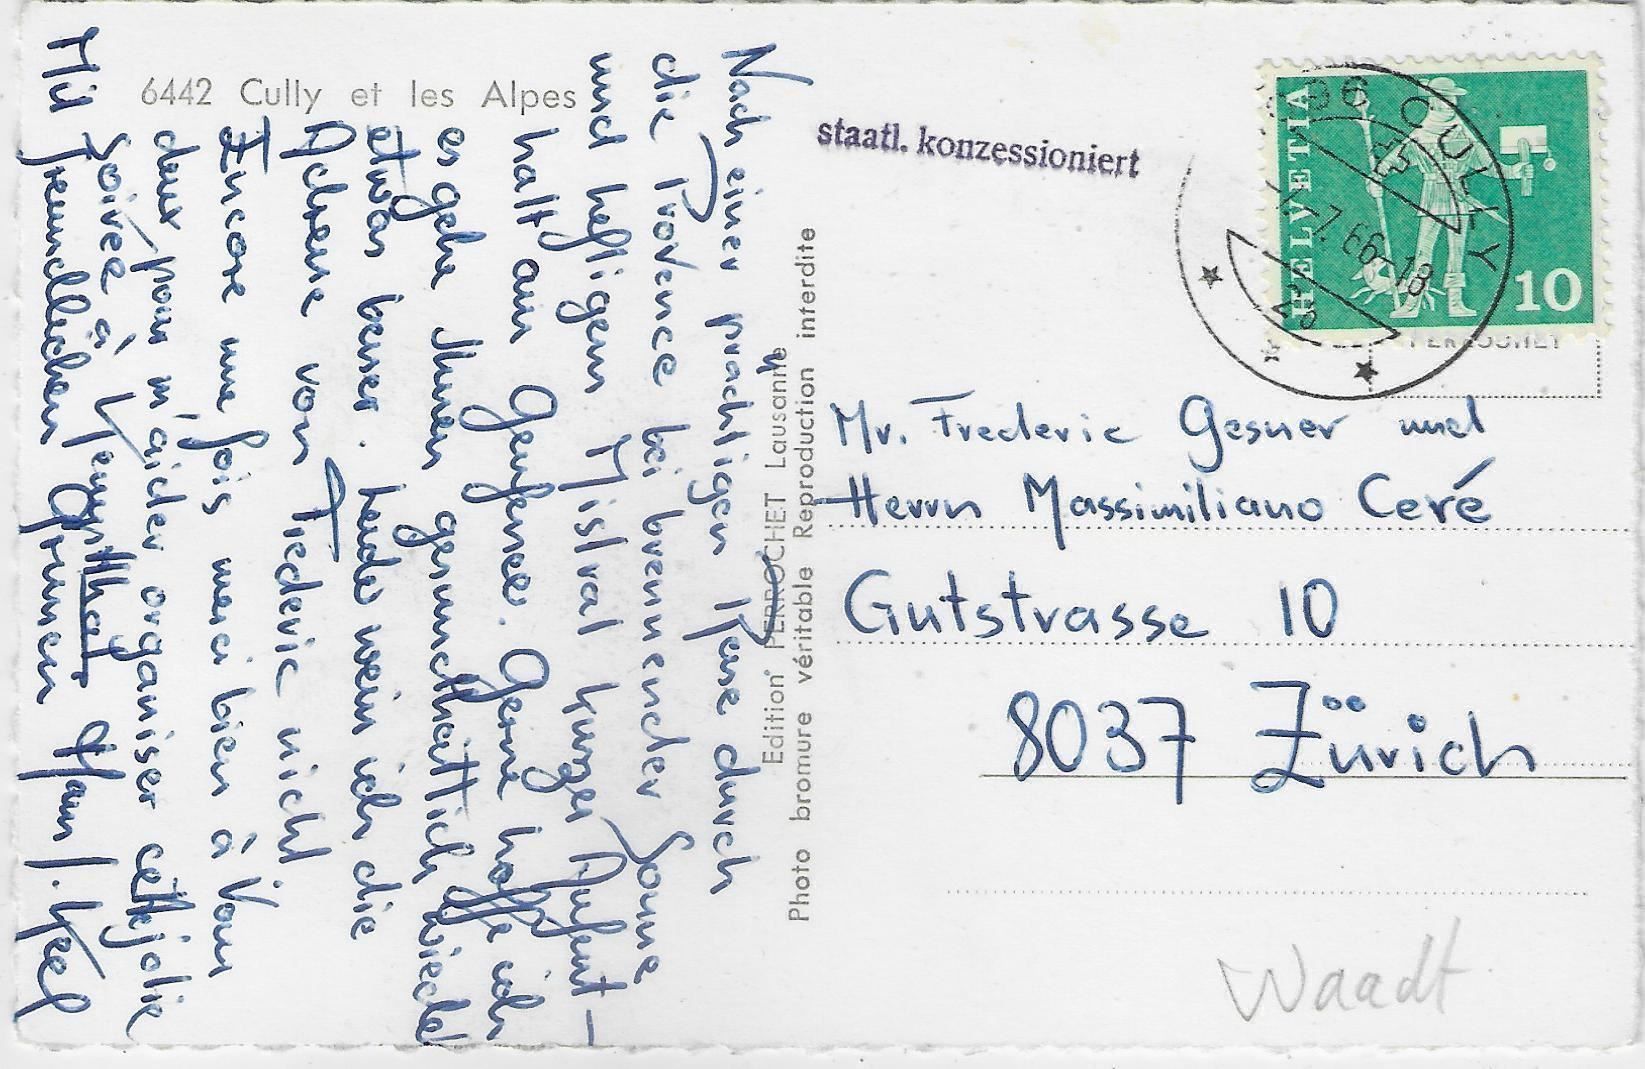 6442 Cully et les Alpes
Nach einer prächtigen Reise durch
die Provence bei brennender Sonne
und heftigem Mistral kurzer Aufent-
halt am Genfersee. Gerne hoffe ich
es gehe Ihnen gesundheitlich wieder
etwas besser. Leider weiss ich die
Adresse von Frederic nicht
Encore une fois merci bien à Vous
deux pour m'aider organiser cette jolie
Soirée à
Mit freundlichen Grüssen
Edition PERROCHET Lausanne
Photo bromure véritable Reproduction interdite
staatl. konzessioniert
HELVETIA
10
CULLY
7.66-18
Mr. Frederic Gesner und
Herrn Massimiliano Ceré
Gutstrasse 10
8037 Zürich
Waadt